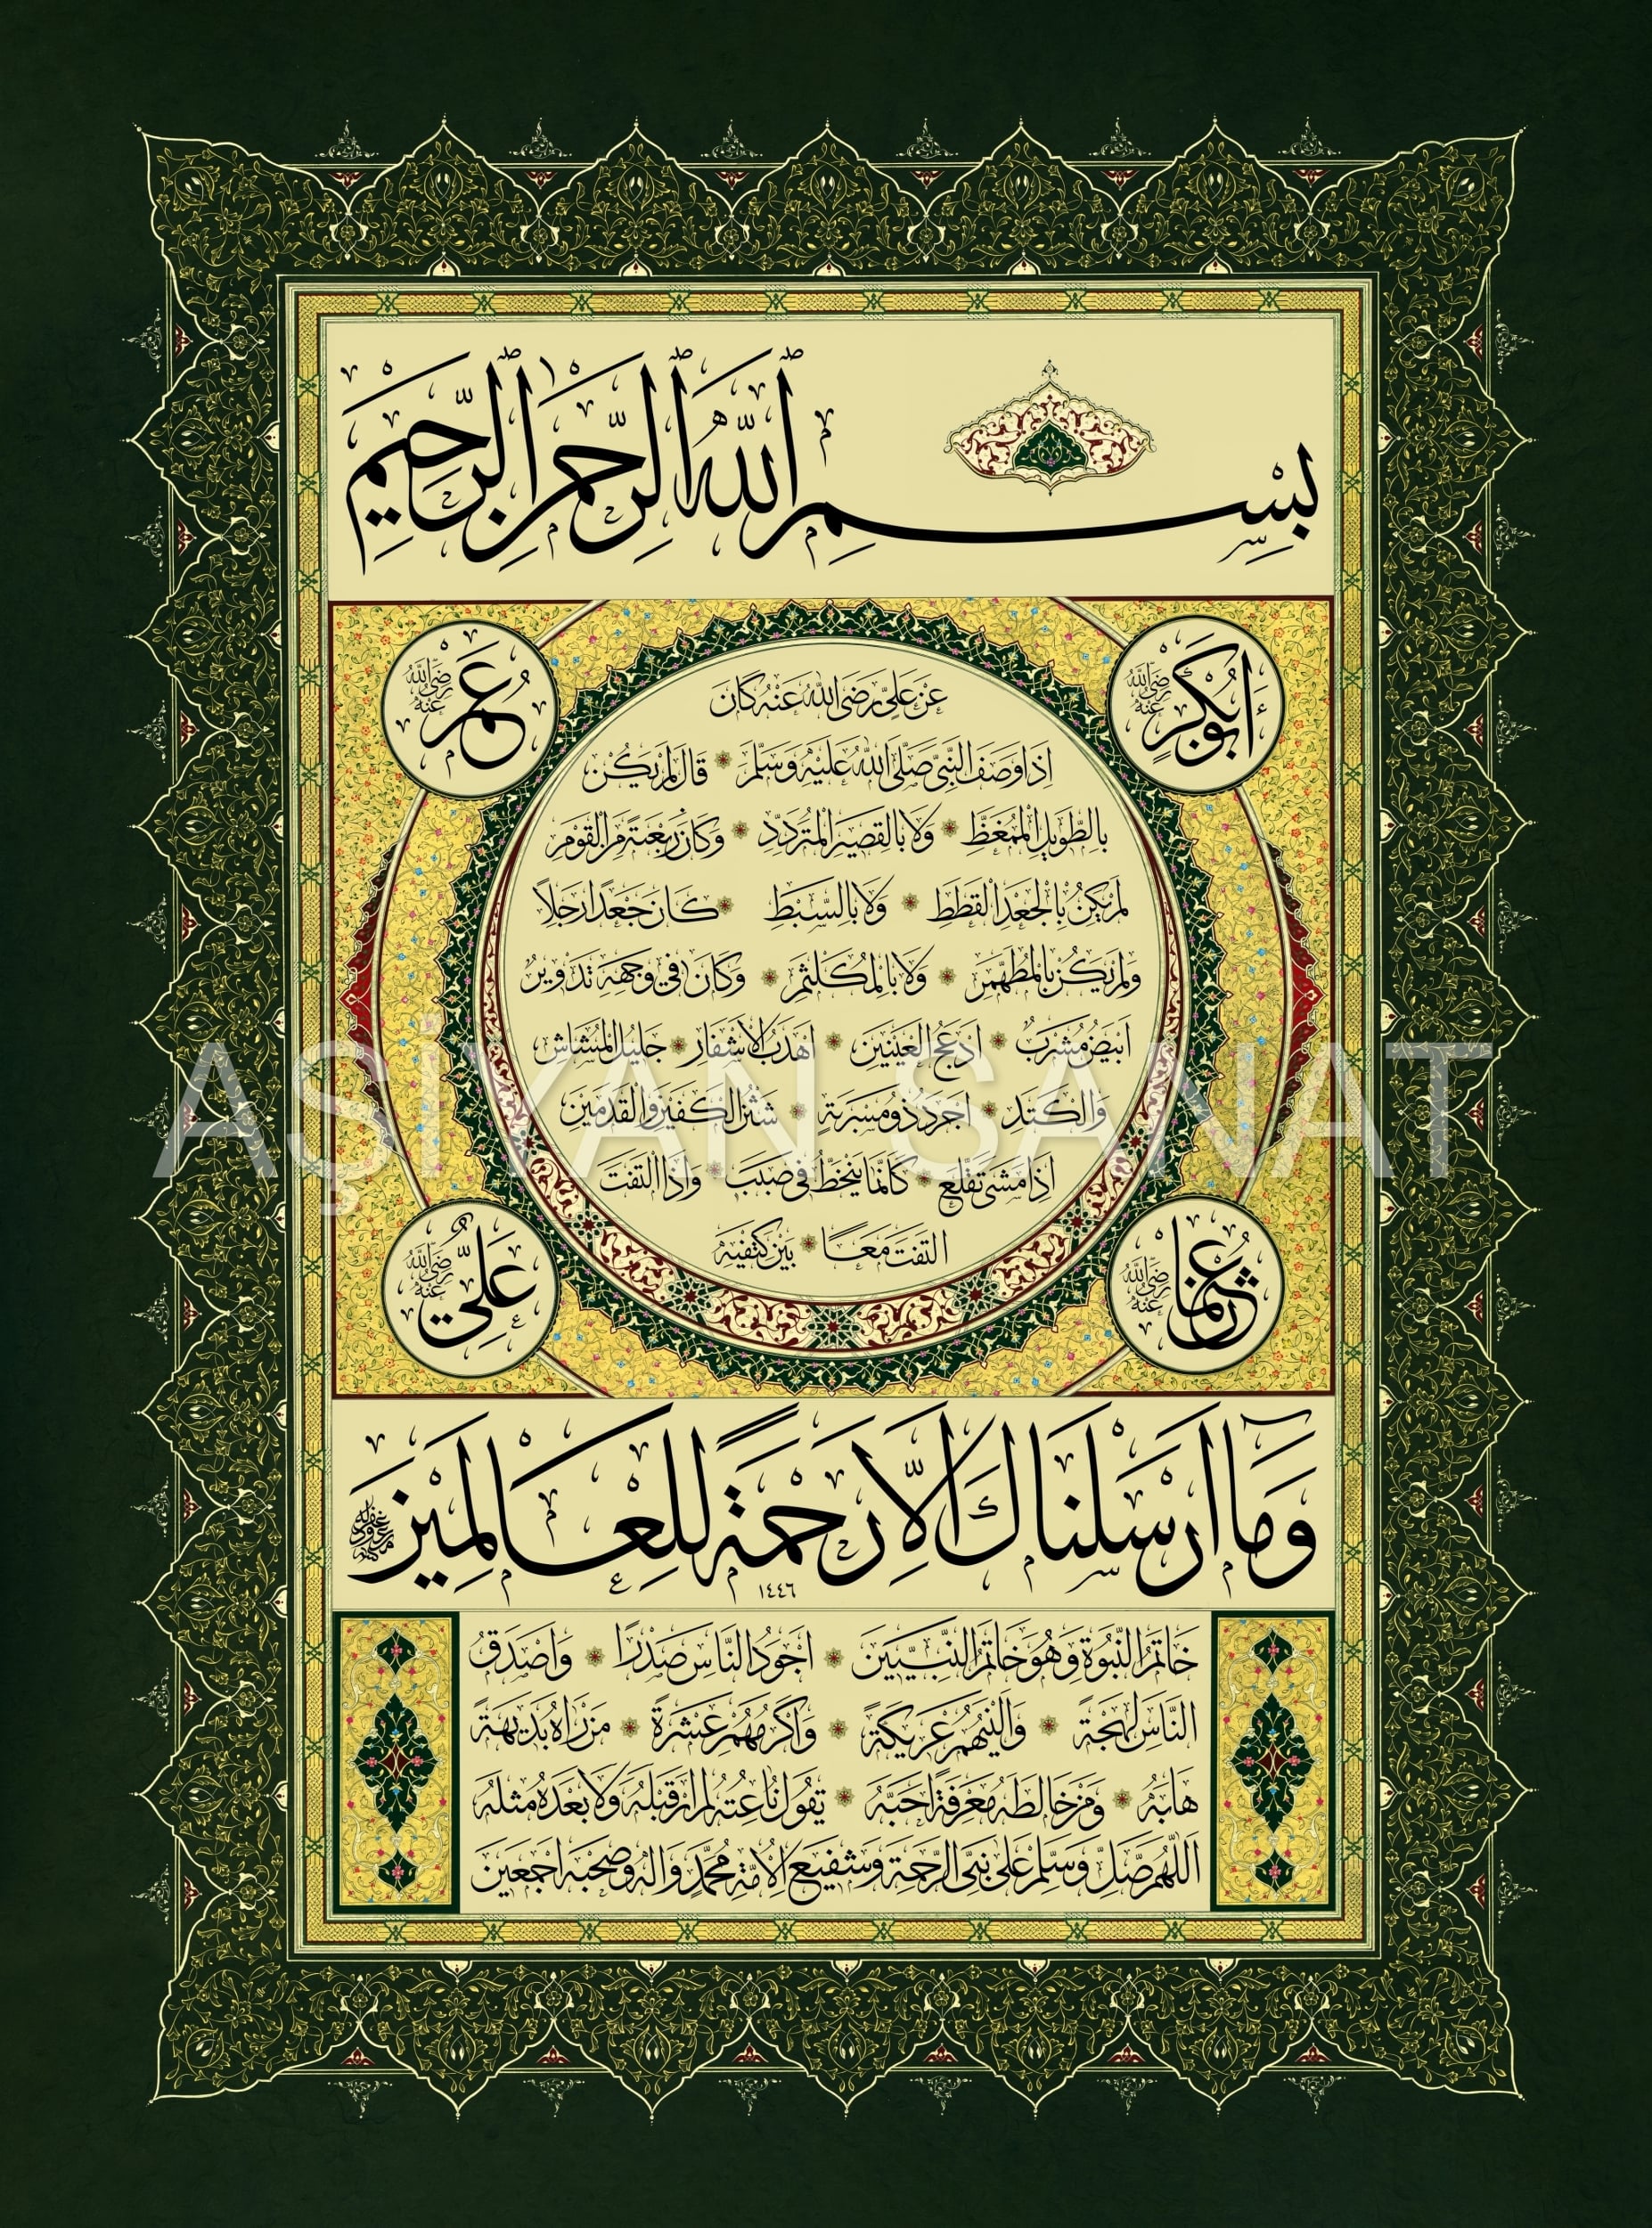 بِسْمِ اللهِ الرَّحْمٰنِ الرَّحِيمِ
ابُوبَكْرٍ رَضِيَ اللهُ عَنْهُ
عُمَر رَضِيَ اللهُ عَنْهُ
عَنْ عَلِيٍّ رَضِيَ اللهُ عَنْهُ كَانَ
اِذَا وَصَفَ النَّبِيَّ صَلَّى اللهُ عَلَيْهِ وَسَلَّمَ * قَالَ لَمْ يَكُنْ
بِالطَّوِيلِ الْمُمَّغِطِ * وَلَا بِالْقَصِيرِ الْمُتَرَدِّدِ * وَكَانَ رَبْعَةً مِنَ الْقَوْمِ
لَمْ يَكُنْ بِالْجَعْدِ الْقَطَطِ * وَلَا بِالسَّبِطِ * كَانَ جَعْدًا رَجِلًا
وَلَمْ يَكُنْ بِالْمُطَهَّمِ * وَلَا بِالْمُكَلْثَمِ * وَكَانَ فِي وَجْهِهِ تَدْوِيرٌ
اَبْيَضُ مُشْرَبٌ * اَدْعَجُ الْعَيْنَيْنِ * اَهْدَبُ الْاَشْفَارِ * جَلِيلُ الْمُشَاشِ
وَالْكَتَدِ * اَجْرَدُ ذُو مَسْرَبَةٍ * شَثْنُ الْكَفَّيْنِ وَالْقَدَمَيْنِ
اِذَا مَشَى تَقَلَّعَ * كَاَنَّمَا يَنْحَطُّ فِي صَبَبٍ * وَاِذَا الْتَفَتَ
الْتَفَتَ مَعًا * بَيْنَ كَتِفَيْهِ
عُثْمَان رَضِيَ اللهُ عَنْهُ
عَلِيٌّ رَضِيَ اللهُ عَنْهُ
وَمَا اَرْسَلْنَاكَ اِلَّا رَحْمَةً لِلْعَالَمِينَ
١٤٤٦
خَاتَمُ النُّبُوَّةِ وَهُوَ خَاتَمُ النَّبِيِّينَ * اَجْوَدُ النَّاسِ صَدْرًا * وَاَصْدَقُ
النَّاسِ لَهْجَةً * وَاَلْيَنُهُمْ عَرِيكَةً * وَاَكْرَمُهُمْ عِشْرَةً * مَنْ رَاٰهُ بَدِيهَةً
هَابَهُ * وَمَنْ خَالَطَهُ مَعْرِفَةً اَحَبَّهُ * يَقُولُ نَاعِتُهُ لَمْ اَرَ قَبْلَهُ وَلَا بَعْدَهُ مِثْلَهُ
اَللّٰهُمَّ صَلِّ وَسَلِّمْ عَلَى نَبِيِّ الرَّحْمَةِ وَشَفِيعِ الْاُمَّةِ مُحَمَّدٍ وَاٰلِهِ وَصَحْبِهِ اَجْمَعِينَ
AŞİYAN SANAT